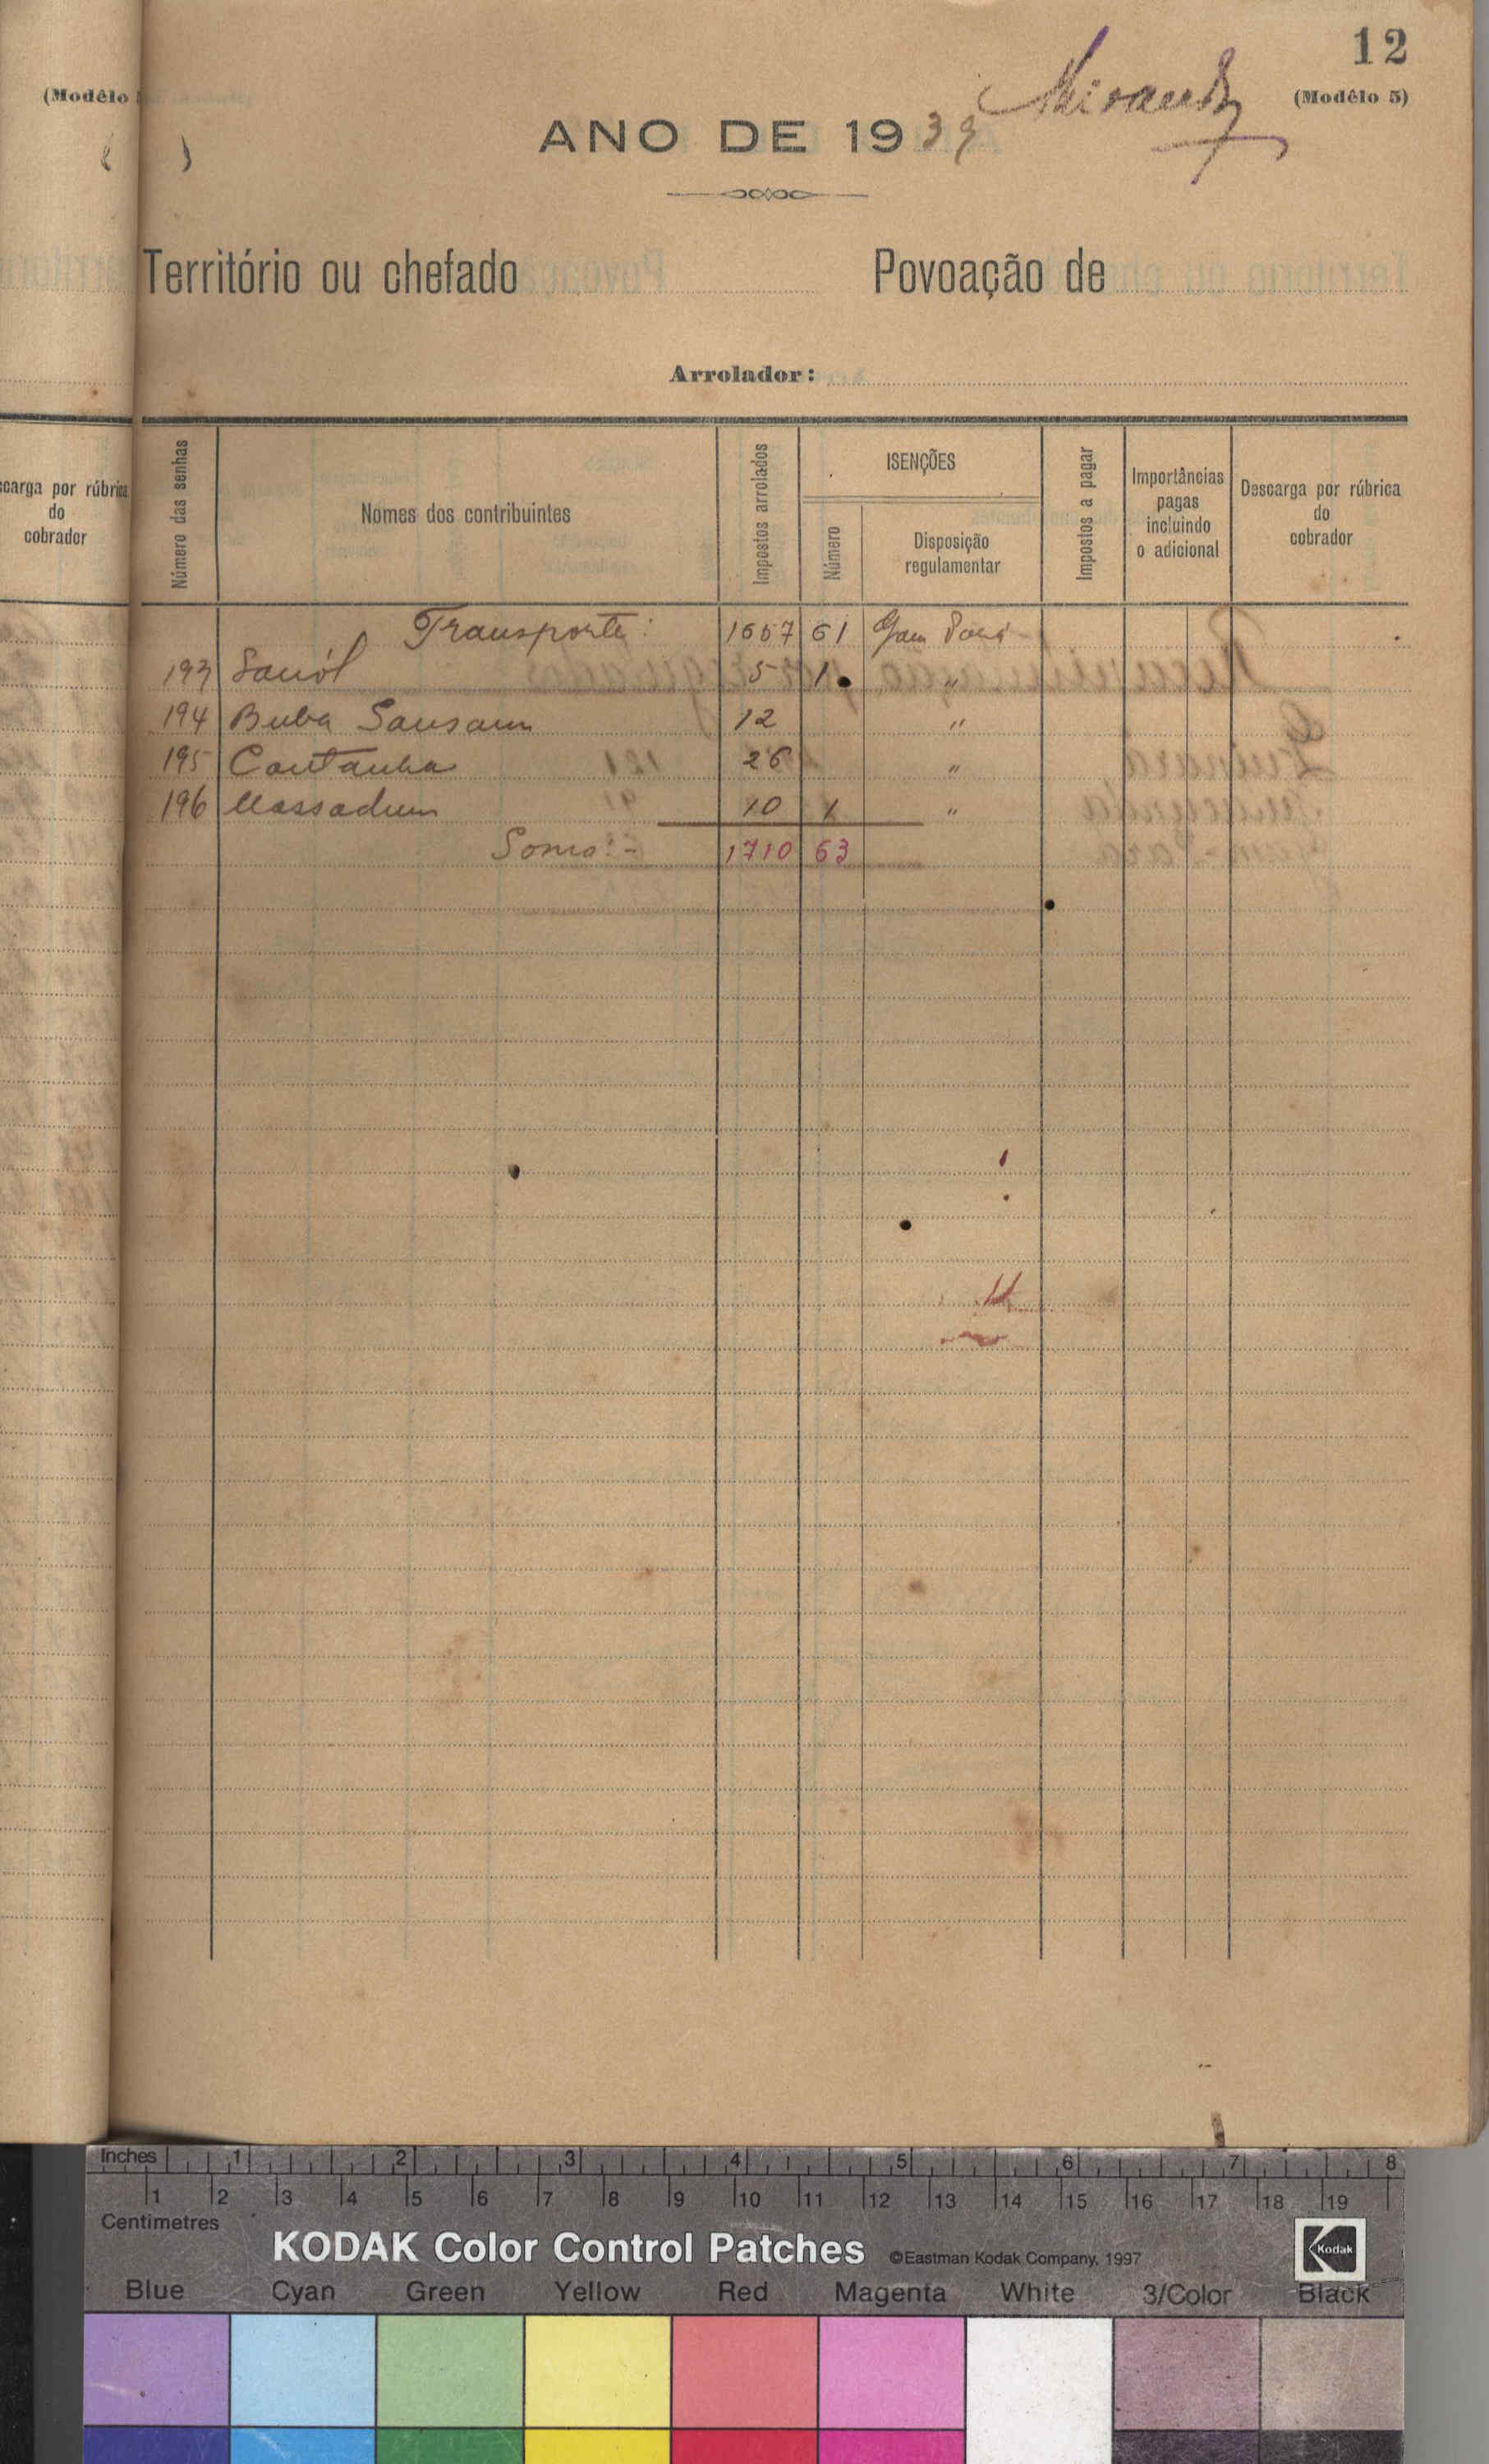 12
(Modêlo 5)
ANO DE 1939
Território ou chefado
Povoação de
Arrolador:
carga por rúbrica
do
cobrador
Número das senhas
Nomes dos contribuintes
Impostos arrolados
ISENÇÕES
Número
Disposição
regulamentar
Impostos a pagar
Importâncias
pagas
incluindo
o adicional
Descarga por rúbrica
do
cobrador
Transporte: 1657 61 Gam Pará
193 5 1 "
194 Buba Sansam 12 "
195 Cantanha 26 "
196 Massadum 10 1 "
Soma:- 1710 63
Inches 1 2 3 4 5 6 7 8
1 2 3 4 5 6 7 8 9 10 11 12 13 14 15 16 17 18 19
Centimetres
KODAK Color Control Patches ©Eastman Kodak Company, 1997 Kodak
Blue Cyan Green Yellow Red Magenta White 3/Color Black